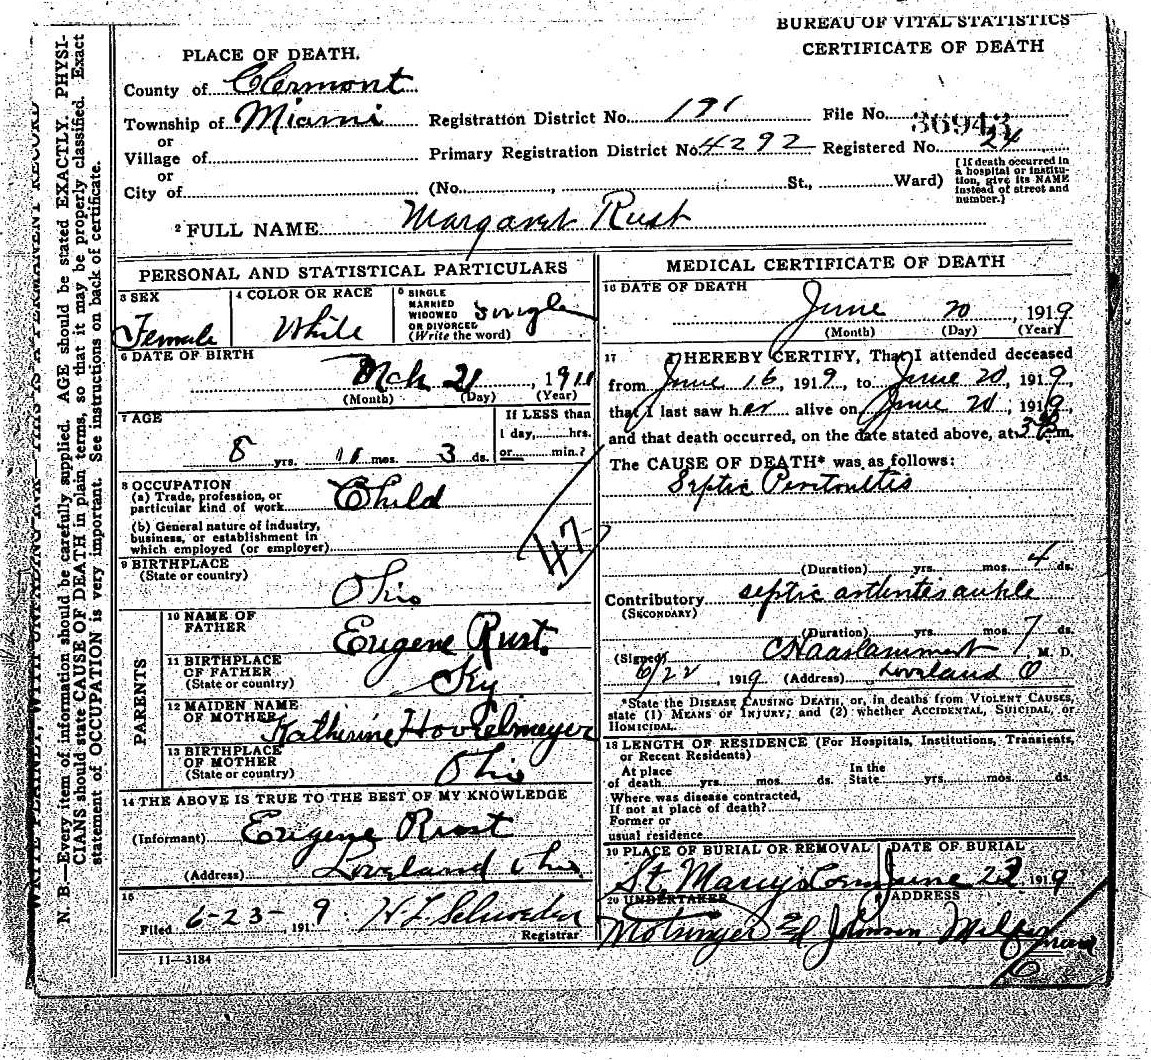 BUREAU OF VITAL STATISTICS
PLACE OF DEATH.
CERTIFICATE OF DEATH
County of Clermont
Township of Miami Registration District No. 191 File No. 36943
or
Village of Primary Registration District No. 4292 Registered No. 24
or
City of (No. , St., Ward)
[If death occurred in
a hospital or institu-
tion, give its NAME
instead of street and
number.]
2 FULL NAME Margaret Rust
PERSONAL AND STATISTICAL PARTICULARS
3 SEX
Female
4 COLOR OR RACE
White
5 SINGLE
MARRIED
WIDOWED
OR DIVORCED
(Write the word)
single
6 DATE OF BIRTH
Mch 21, 1911
(Month) (Day) (Year)
7 AGE
8 yrs. 11 mos. 3 ds.
If LESS than
1 day, hrs.
or min.?
8 OCCUPATION
(a) Trade, profession, or
particular kind of work Child
(b) General nature of industry,
business, or establishment in
which employed (or employer)
47
9 BIRTHPLACE
(State or country)
Ohio
PARENTS
10 NAME OF
FATHER
Eugene Rust.
11 BIRTHPLACE
OF FATHER
(State or country)
Ky.
12 MAIDEN NAME
OF MOTHER
Katherine
13 BIRTHPLACE
OF MOTHER
(State or country)
Ohio
14 THE ABOVE IS TRUE TO THE BEST OF MY KNOWLEDGE
(Informant) Eugene Rust
(Address) Loveland Ohio
15
Filed 6-23- 1919 Registrar
11—3184
MEDICAL CERTIFICATE OF DEATH
16 DATE OF DEATH
June 20, 1919
(Month) (Day) (Year)
17 I HEREBY CERTIFY, That I attended deceased
from June 16, 1919, to June 20, 1919,
that I last saw her alive on June 20, 1919,
and that death occurred, on the date stated above, at m.
The CAUSE OF DEATH* was as follows:
Septic Peritonitis
(Duration) yrs. mos. 4 ds.
Contributory septic arthritis ankle
(SECONDARY)
(Duration) yrs. mos. 7 ds.
(Signed) M. D.
6/22, 1919 (Address) Loveland O
*State the DISEASE CAUSING DEATH, or, in deaths from VIOLENT CAUSES,
state (1) MEANS OF INJURY; and (2) whether ACCIDENTAL, SUICIDAL, or
HOMICIDAL.
18 LENGTH OF RESIDENCE (For Hospitals, Institutions, Transients,
or Recent Residents)
At place
of death yrs. mos. ds.
In the
State yrs. mos. ds.
Where was disease contracted,
If not at place of death?
Former or
usual residence
19 PLACE OF BURIAL OR REMOVAL
St. Mary's Cem
DATE OF BURIAL
June 23, 1919
20 UNDERTAKER
ADDRESS
Johnson
N. B.—Every item of information should be carefully supplied. AGE should be stated EXACTLY. PHYSI-
CIANS should state CAUSE OF DEATH in plain terms, so that it may be properly classified. Exact
statement of OCCUPATION is very important. See instructions on back of certificate.
WRITE PLAINLY, WITH UNFADING INK—THIS IS A PERMANENT RECORD